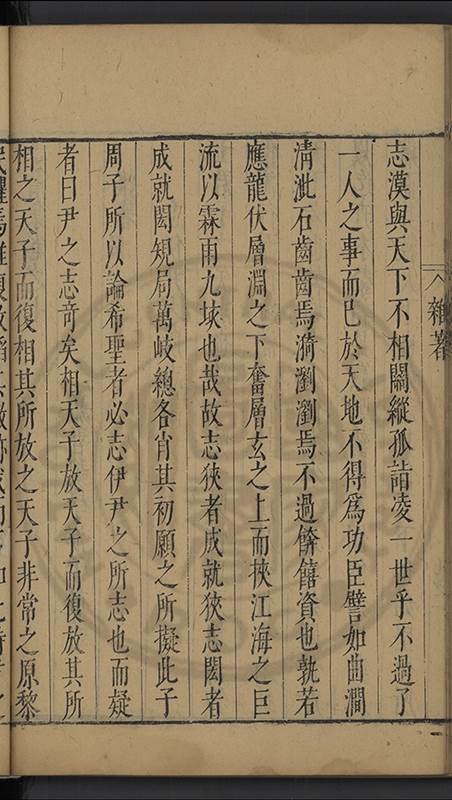 雜著
志漠與天下不相關縱孤詣凌一世乎不過了
一人之事而已於天地不得為功臣譬如曲澗
清泚石齒齒焉漪瀏瀏焉不過餴饎資也孰若
應龍伏層淵之下奮層玄之上而挾江海之巨
流以霖雨九垓也哉故志狹者成就狹志閎者
成就閎規局萬岐總各肖其初願之所擬此子
周子所以論希聖者必志伊尹之所志也而疑
者曰尹之志奇矣相天子放天子而復放其所
相之天子而復相其所放之天子非常之原黎